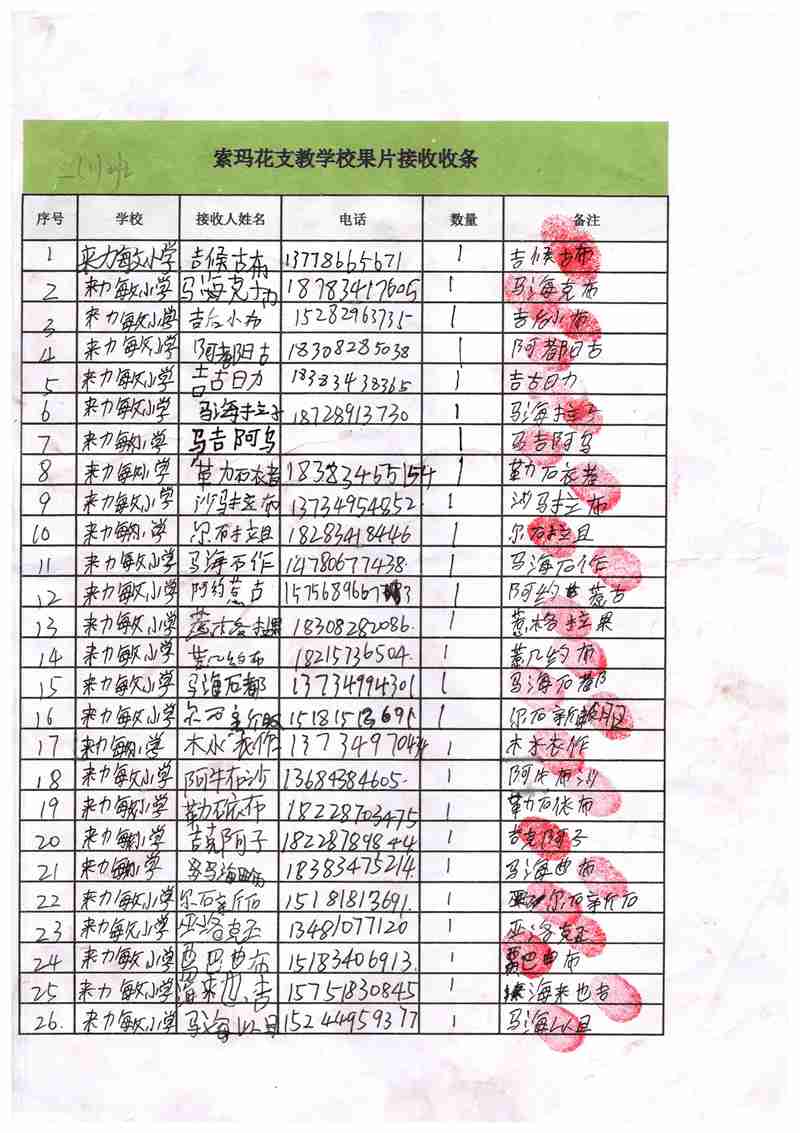 索玛花支教学校果片接收收条
序号 学校 接收人姓名 电话 数量 备注
1 来力敏文小学 吉候古布 13778665671 1 吉候古布
2 来力敏文小学 马海克布 18783417605 1 马海克布
3 来力敏文小学 吉后小布 15282963735 1 吉后小布
4 来力敏文小学 阿都日古 18308285038 1 阿都日古
5 来力敏文小学 吉古日力 18383438365 1 吉古日力
6 来力敏文小学 马海拉子 18728913730 1 马海拉子
7 来力敏文小学 马吉阿乌 1 马吉阿乌
8 来力敏文小学 勒力石衣者 18383455154 1 勒石衣者
9 来力敏文小学 沙马拉布 13734954852. 1 沙马拉布
10 来力敏文小学 尔石拉且 18283418446 1 尔石拉且
11 来力敏文小学 马海石作 14780677438. 1 马海石作
12 来力敏文小学 阿约惹古 1 阿约惹古
13 来力敏文小学 18308282086. 1 惹格拉果
14 来力敏文小学 18215736504. 1
15 来力敏文小学 马海石都 13734994301 1 马海石都
16 来力敏文小学 15181513691 1 尔石
17 来力敏文小学 木水衣作 1 木水衣作
18 来力敏文小学 阿牛布沙 13684384605. 1 阿牛布沙
19 来力敏文小学 勒石依布 18228703475 1 勒石依布
20 来力敏文小学 吉克阿子 18228789844 1 吉克阿子
21 来力敏文小学 马海 18383475214. 1 马海曲布
22 来力敏文小学 尔石 15181813691. 1 尔石
23 来力敏文小学 亚洛克亚 13481077120 1 亚洛克亚
24 来力敏文小学 巴曲布 15183406913. 1 巴曲布
25 来力敏文小学 海来也吉 15751830845 1 海来也吉
26. 来力敏文小学 马海以且 15244959377 1 马海以且